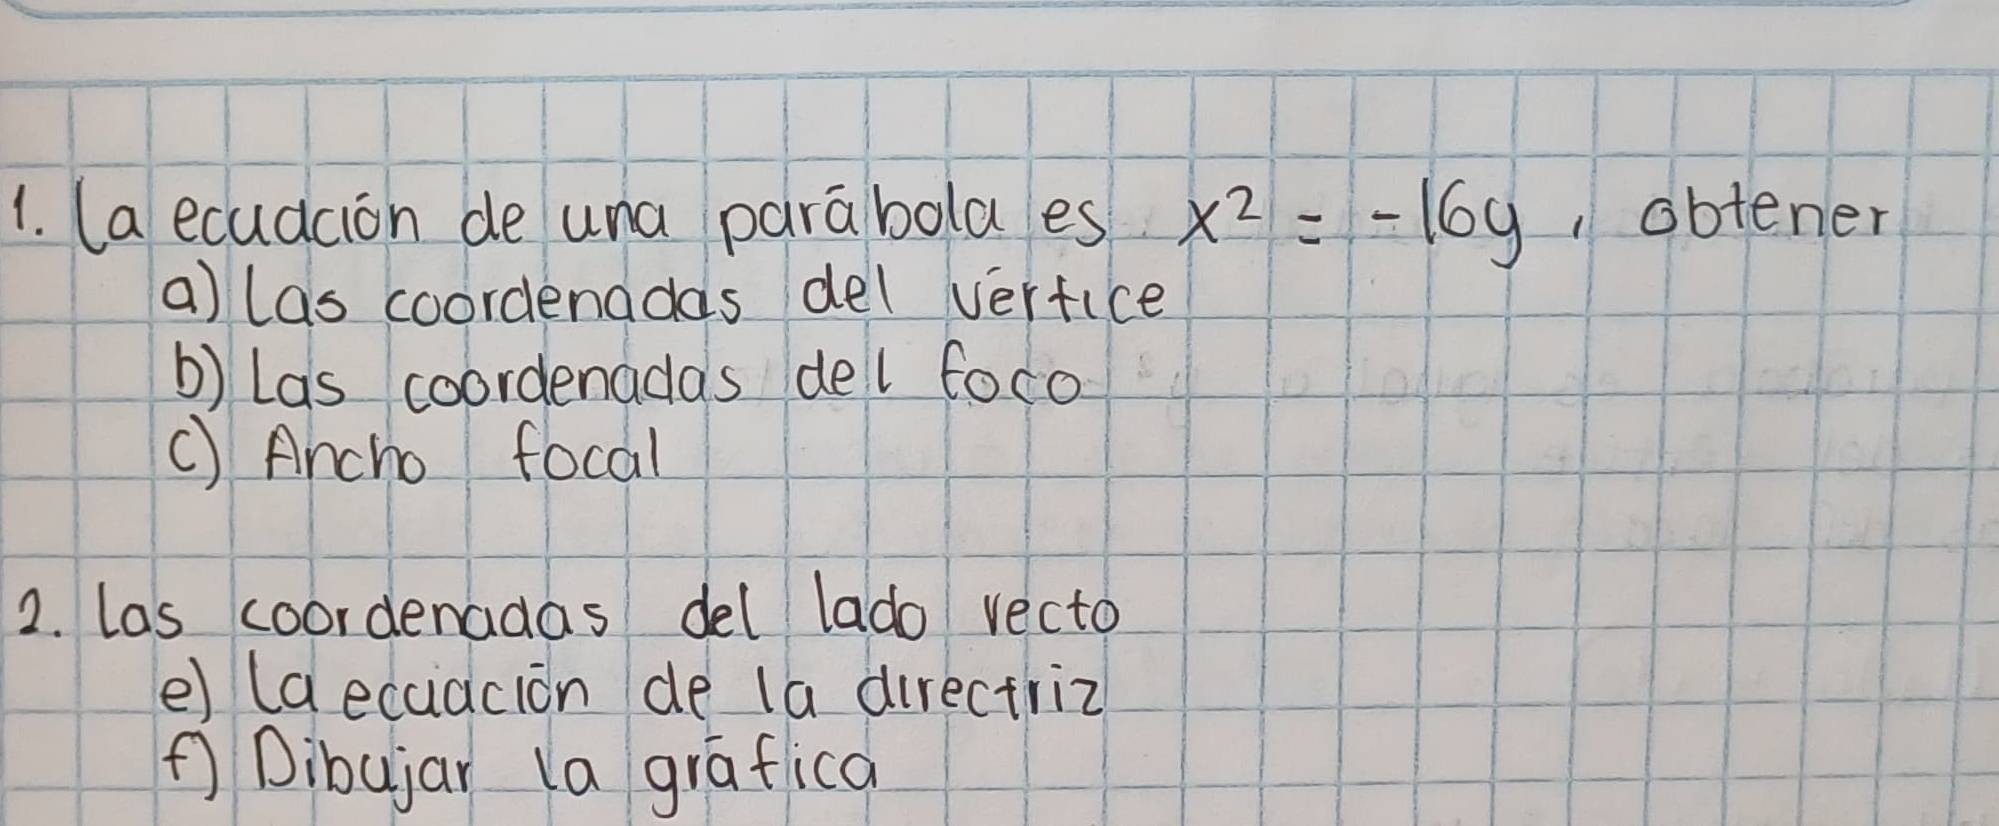 1. La ecuación de una parábola es x² = -16y, obtener
a) Las coordenadas del vértice
b) Las coordenadas del foco
c) Ancho focal
2. Las coordenadas del lado recto
e) La ecuación de la directriz
f) Dibujar la gráfica